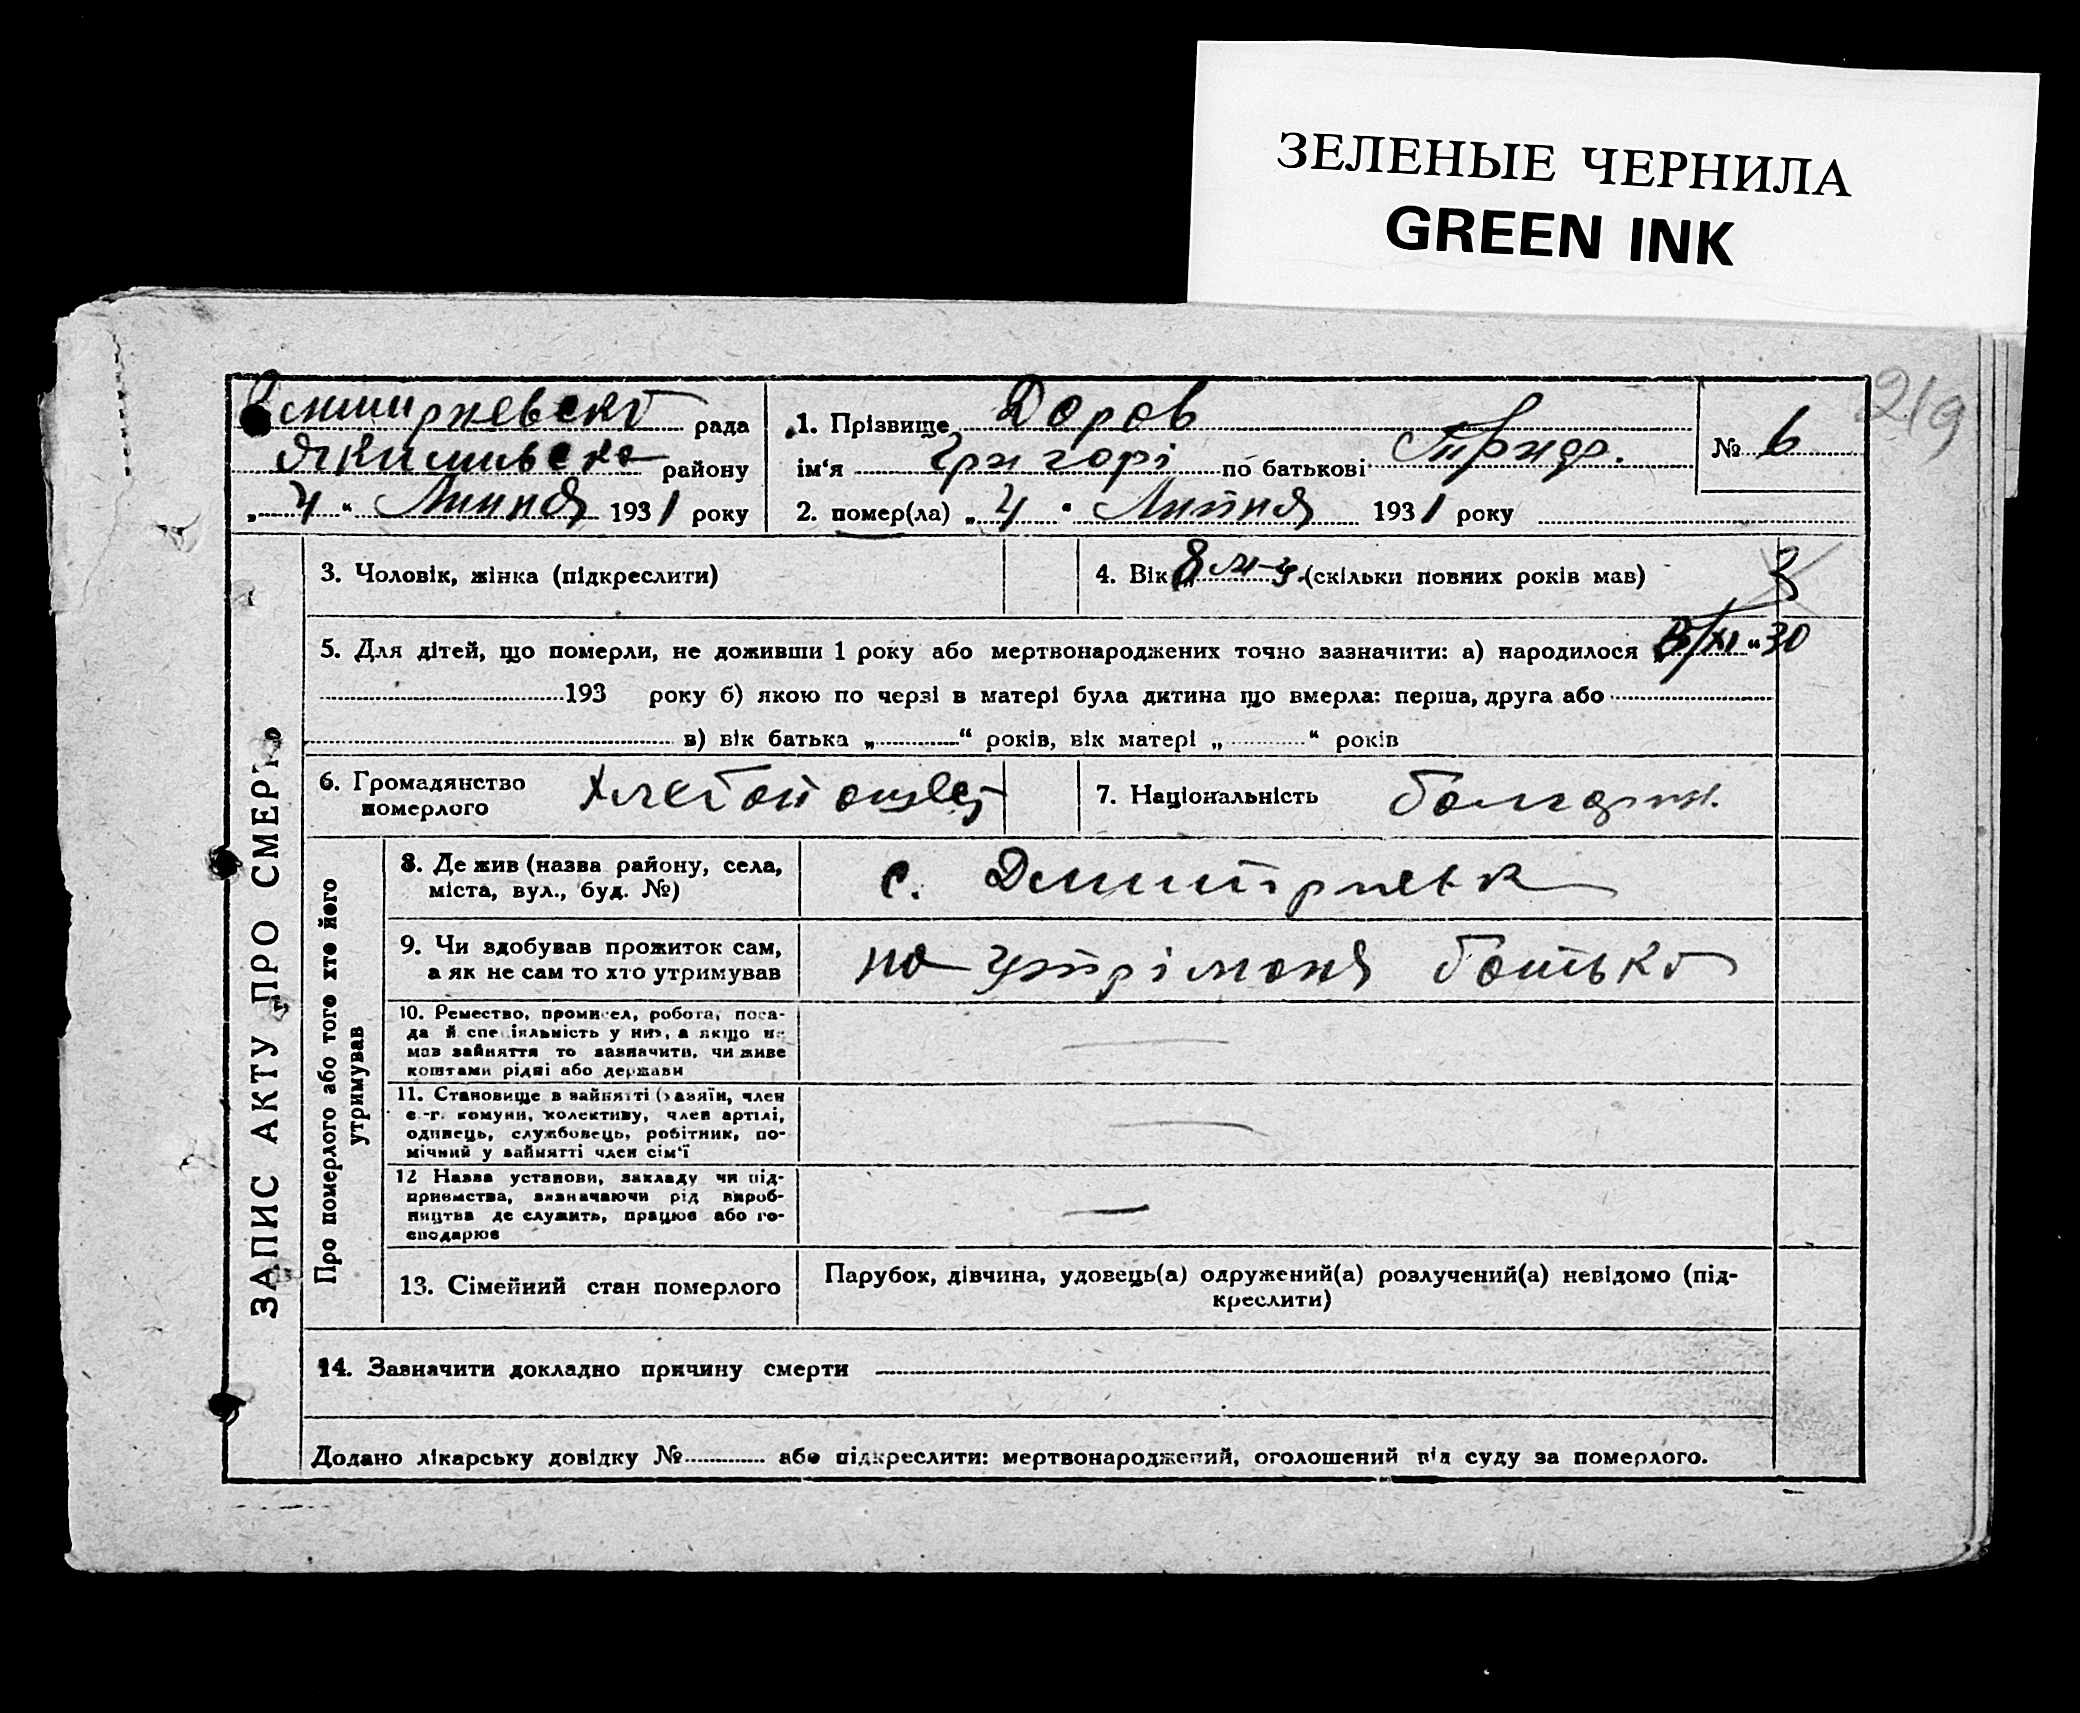 ЗЕЛЕНЫЕ ЧЕРНИЛА
GREEN INK
219
рада
району
„ 4 “ Липня 1931 року
1. Прізвище Доров
ім‘я Григорі по батькові
2. помер(ла) „ 4 “ Липня 1931 року
№ 6
ЗАПИС АКТУ ПРО СМЕРТЬ
3. Чоловік, жінка (підкреслити)
4. Вік „ 8 м-ц. (скільки повних років мав)
5. Для дітей, що померли, не доживши 1 року або мертвонароджених точно зазначити: а) народилося „ /XI “ 30
193 року б) якою по черзі в матері була дитина що вмерла: перша, друга або
в) вік батька „ “ років, вік матері „ “ років
6. Громадянство
померлого
7. Національність болгарин.
Про померлого або того хто його
утримував
8. Де жив (назва району, села,
міста, вул., буд. №)
с. Дмитрієвка
9. Чи здобував прожиток сам,
а як не сам то хто утримував
на утріманя батька
10. Ремество, промисел, робота, поса-
да й спеціяльність у них, а якщо не
мав зайняття то зазначити, чи живе
коштами рідні або держави
11. Становище в зайнятті (хазяїн, член
с.-г. комуни, колективу, член артілі,
одинець, службовець, робітник, по-
мічний у зайнятті член сім‘ї
12 Назва установи, закладу чи під-
приємства, визначаючи рід вироб-
ництва де служить, працює або го-
сподарює
13. Сімейний стан померлого
Парубок, дівчина, удовець(а) одружений(а) розлучений(а) невідомо (під-
креслити)
14. Зазначити докладно причину смерти
Додано лікарську довідку № або підкреслити: мертвонароджений, оголошений від суду за померлого.